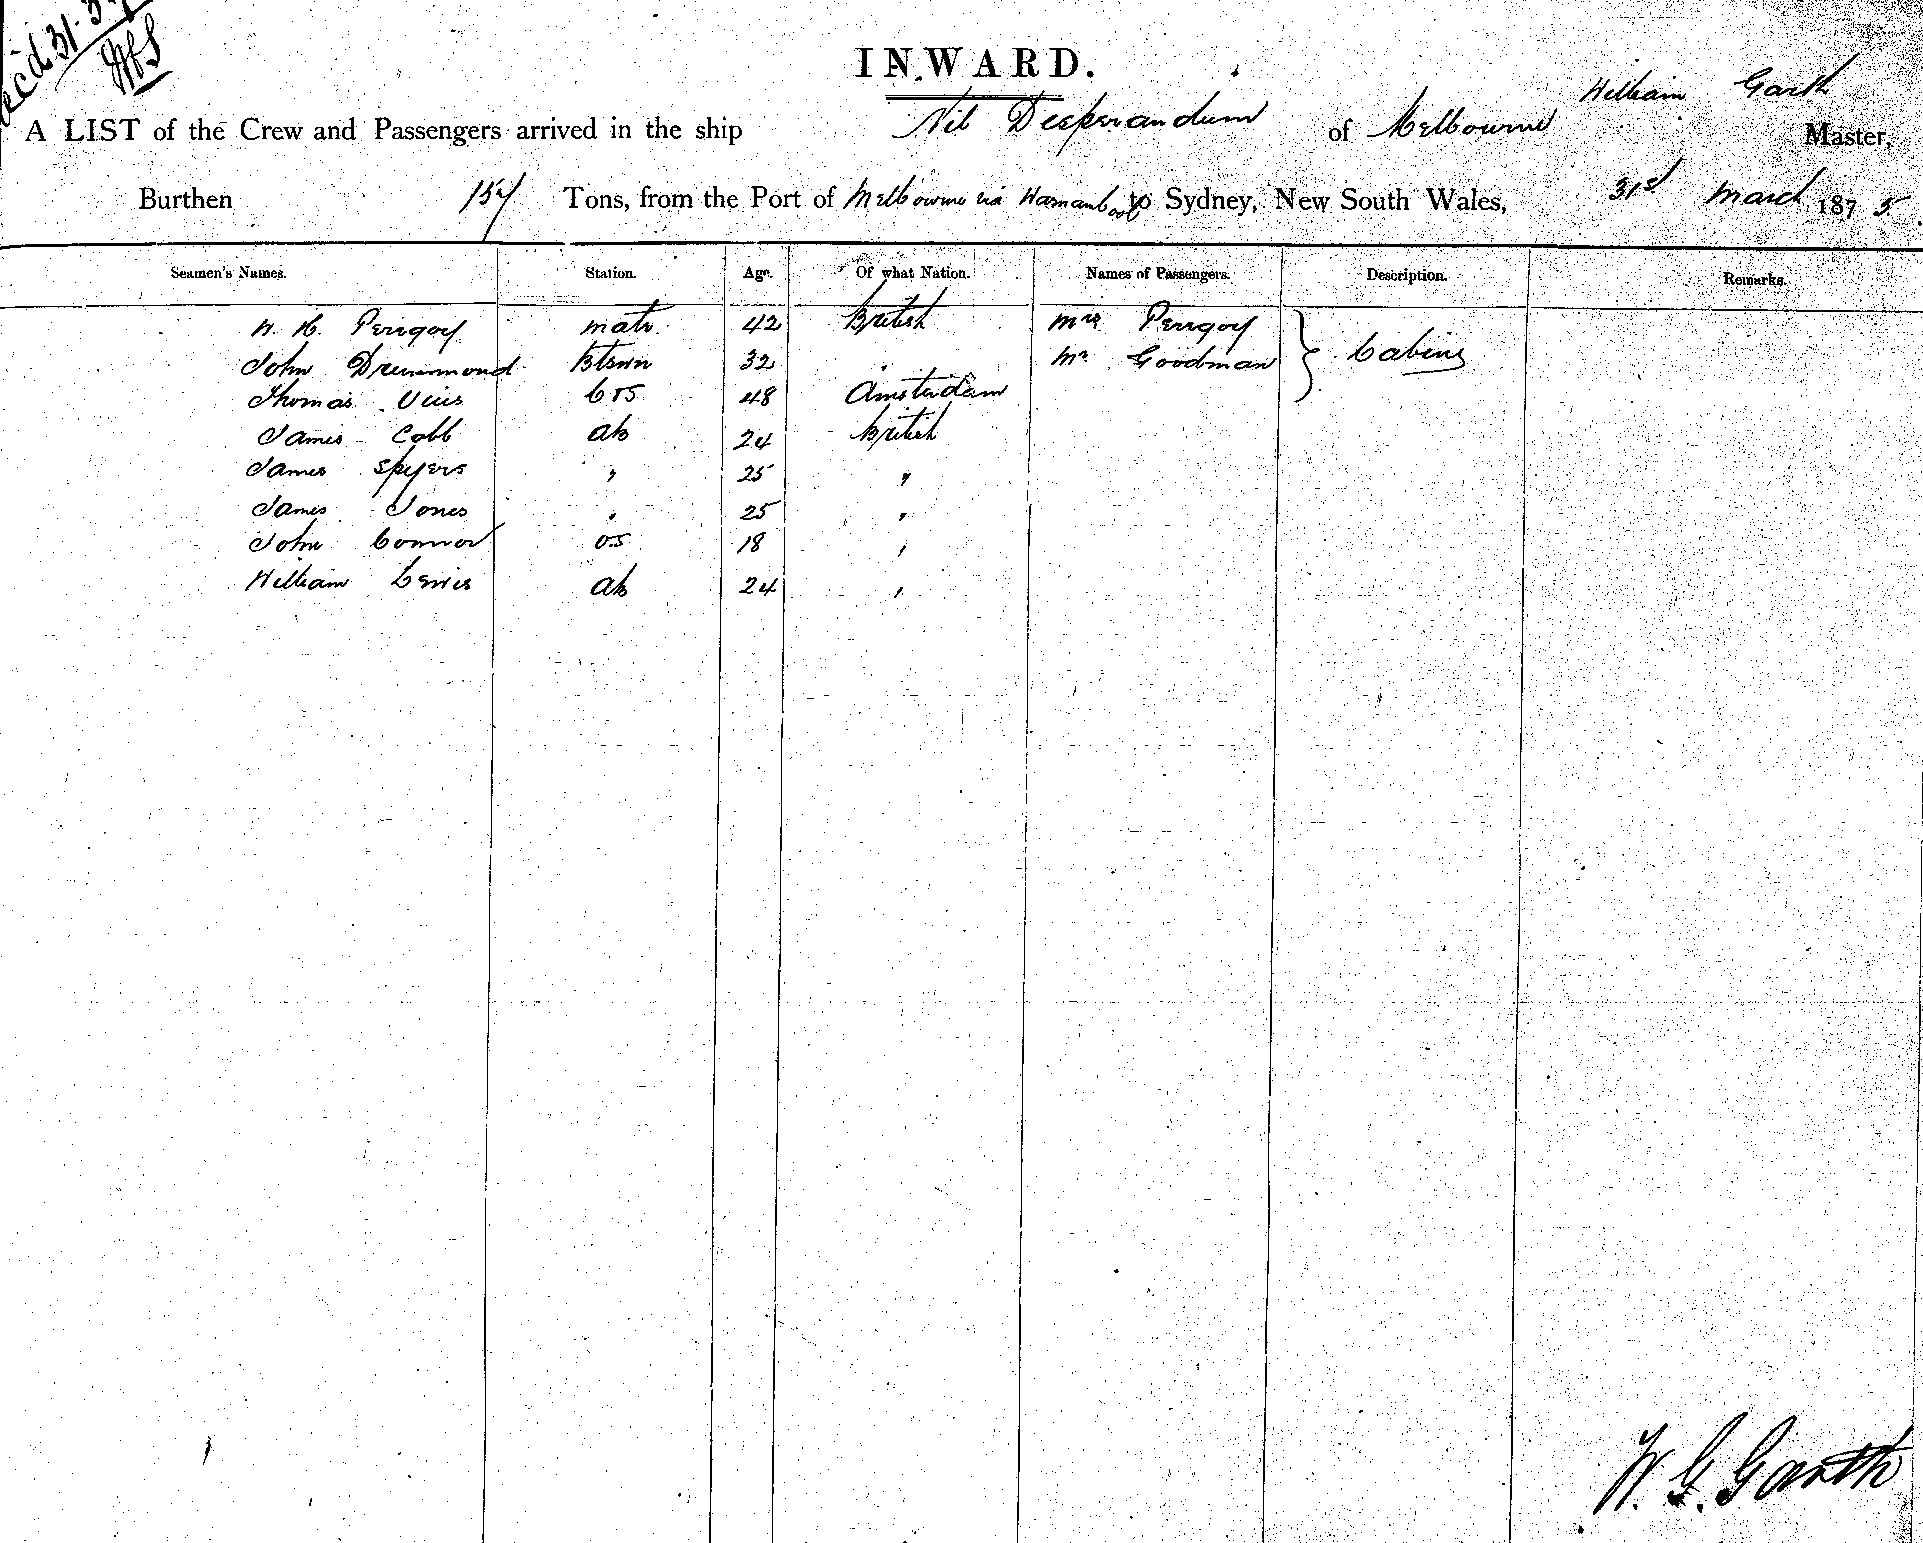 INWARD.
William Garth
A LIST of the Crew and Passengers arrived in the ship Nil Desperandum of Melbourne Master,
Burthen 157 Tons, from the Port of Melbourne via Warnambool to Sydney, New South Wales, 31st March 1875
Seamen's Names. Station. Age. Of what Nation. Names of Passengers. Description. Remarks.
W. H. Perrgoy mate 42 British Mrs Perrgoy
John Drummond Btswn 32 Mr Goodman Cabins
Thomas 48 Amsterdam
James Cobb ab 24 British
James Spyers " 25 "
James Jones " 25 "
John Connor os 18 "
William Lewis ab 24 "
W. G. Garth